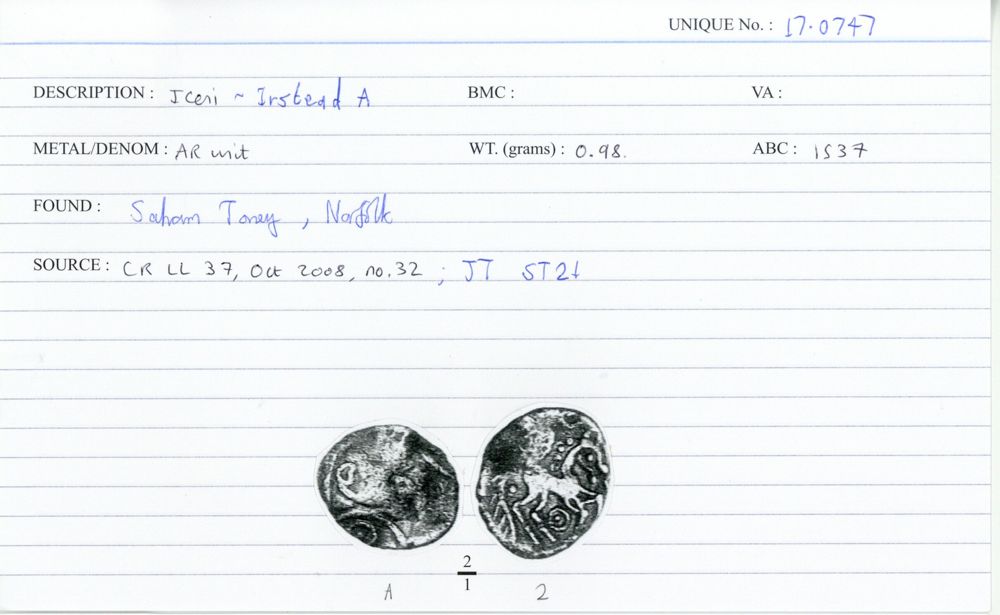 UNIQUE No. : 17.0747
DESCRIPTION : Iceni ~ Irstead A BMC : VA :
METAL/DENOM : AR unit WT. (grams) : 0.98. ABC : 1537
FOUND : Saham Toney, Norfolk
SOURCE : CR LL 37, Oct 2008, no.32 ; JT ST21
2
1
A 2